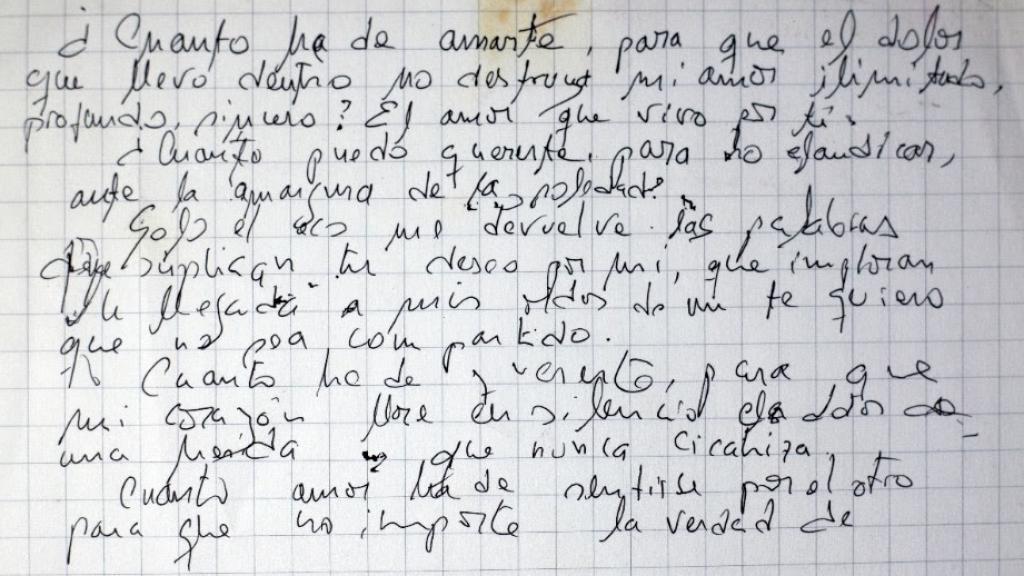 ¿ Cuanto ha de amarte, para que el dolor
que llevo dentro no destruya mi amor ilimitado,
profundo, sincero? El amor que vivo por ti.
¿ Cuanto puedo quererte, para no claudicar,
ante la amargura de la soledad?
Solo el eco me devuelve las palabras
que suplican tu deseo por mi, que imploran
la llegada a mis oidos de un te quiero
que no sea compartido.
Cuanto he de quererte, para que
mi corazón llore en silencio el dolor de
una herida que nunca cicatriza.
Cuanto amor ha de sentirse por el otro
para que no importe la verdad de